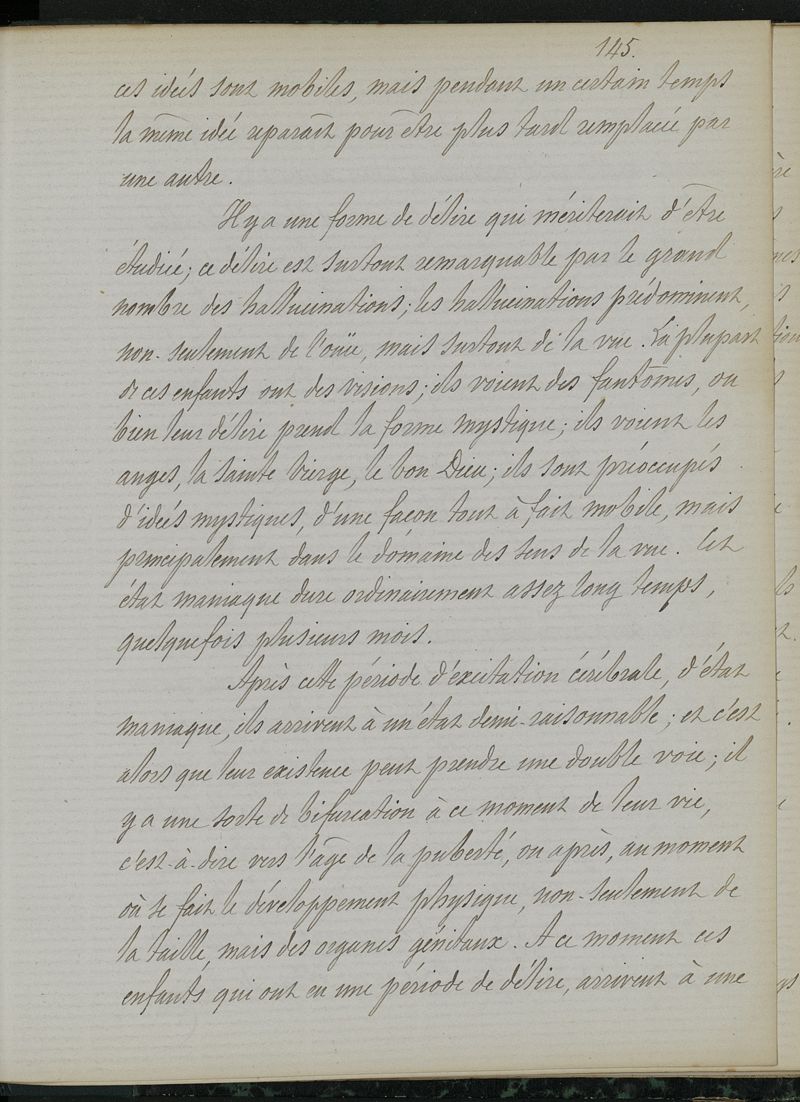 145.
ces idées sont mobiles, mais pendant un certain temps
la même idée reparaît pour être plus tard remplacée par
une autre.
Il y a une forme de délire qui mériterait d'être
étudiée; ce délire est surtout remarquable par le grand
nombre des hallucinations; les hallucinations prédominent,
non-seulement de l'ouïe, mais surtout de la vue. La plupart
de ces enfants ont des visions; ils voient des fantômes, ou
bien leur délire prend la forme mystique; ils voient les
anges, la Sainte Vierge, le bon Dieu; ils sont préoccupés
d'idées mystiques, d'une façon tout à fait mobile, mais
principalement dans le domaine des sens de la vue. Cet
état maniaque dure ordinairement assez long temps,
quelquefois plusieurs mois.
Après cette période d'excitation cérébrale, d'état
maniaque, ils arrivent à un état demi-raisonnable; et c'est
alors que leur existence peut prendre une double voie; il
y a une sorte de bifurcation à ce moment de leur vie,
c'est-à-dire vers l'âge de la puberté, ou après, au moment
où se fait le développement physique, non-seulement de
la taille, mais des organes génitaux. A ce moment ces
enfants qui ont eu une période de délire, arrivent à une